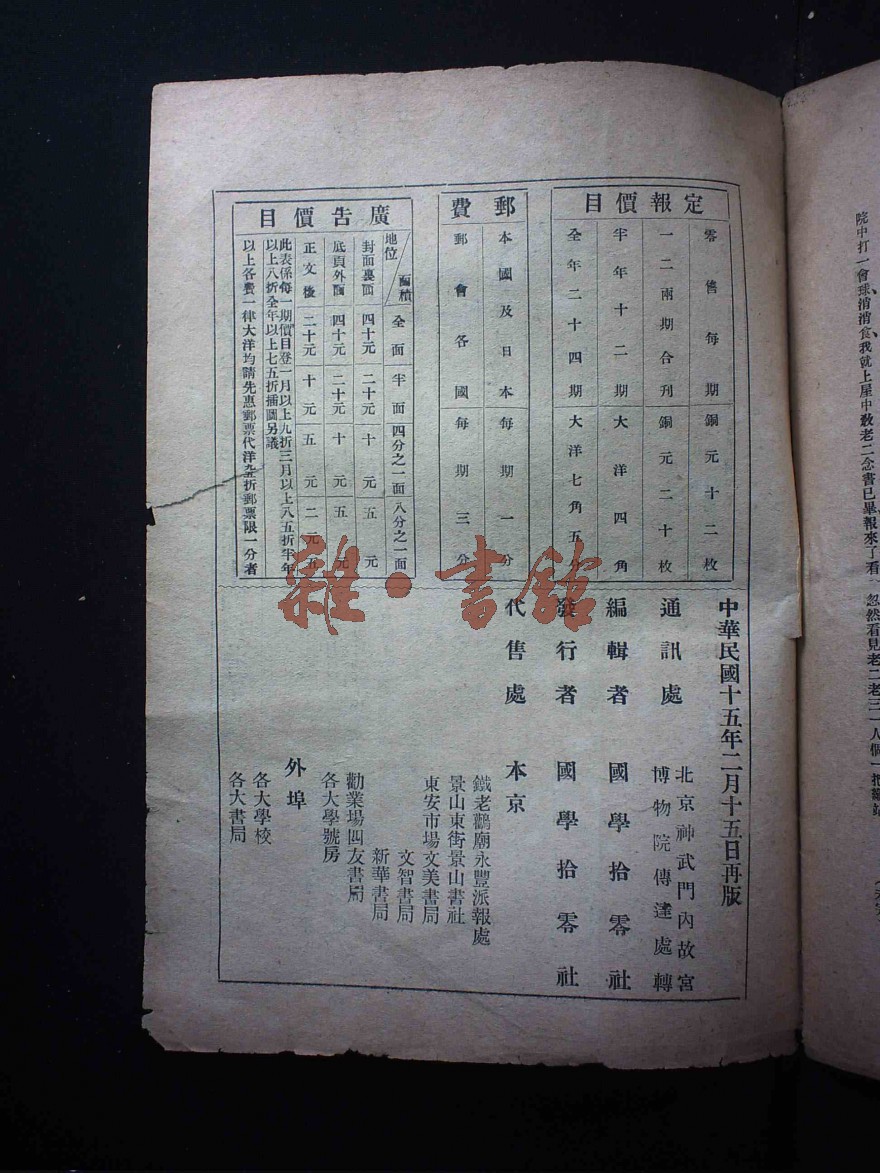 定報價目
零售每期銅元十二枚
一二兩期合刊銅元二十枚
半年十二期大洋四角
全年二十四期大洋七角五分
郵費
本國及日本每期一分
郵會各國每期三分
廣告價目
地位/面積 全面 半面 四分之一面 八分之一面
封面裏面 四十元 二十元 十元 五元
底頁外面 四十元 二十元 十元 五
正文後 二十元 十元 五元 二元五
此表係每一期價目登一月以上九折三月以上八五折半年
以上八折全年以上七五折插圖另議
以上各費一律大洋均請先惠郵票代洋九五折郵票限一分者
中華民國十五年二月十五日再版
通訊處 北京神武門內故宮
博物院傳達處轉
編輯者 國學拾零社
發行者 國學拾零社
代售處 本京
鐵老鸛廟永豐派報處
景山東街景山書社
東安市場文美書局
文智書局
新華書局
勸業場四友書局
各大學號房
外埠
各大學校
各大書局
雜·書館
院中打一會球消消食我就上屋中教老二念書已畢報來了看
忽然看見老二老三一人個一把